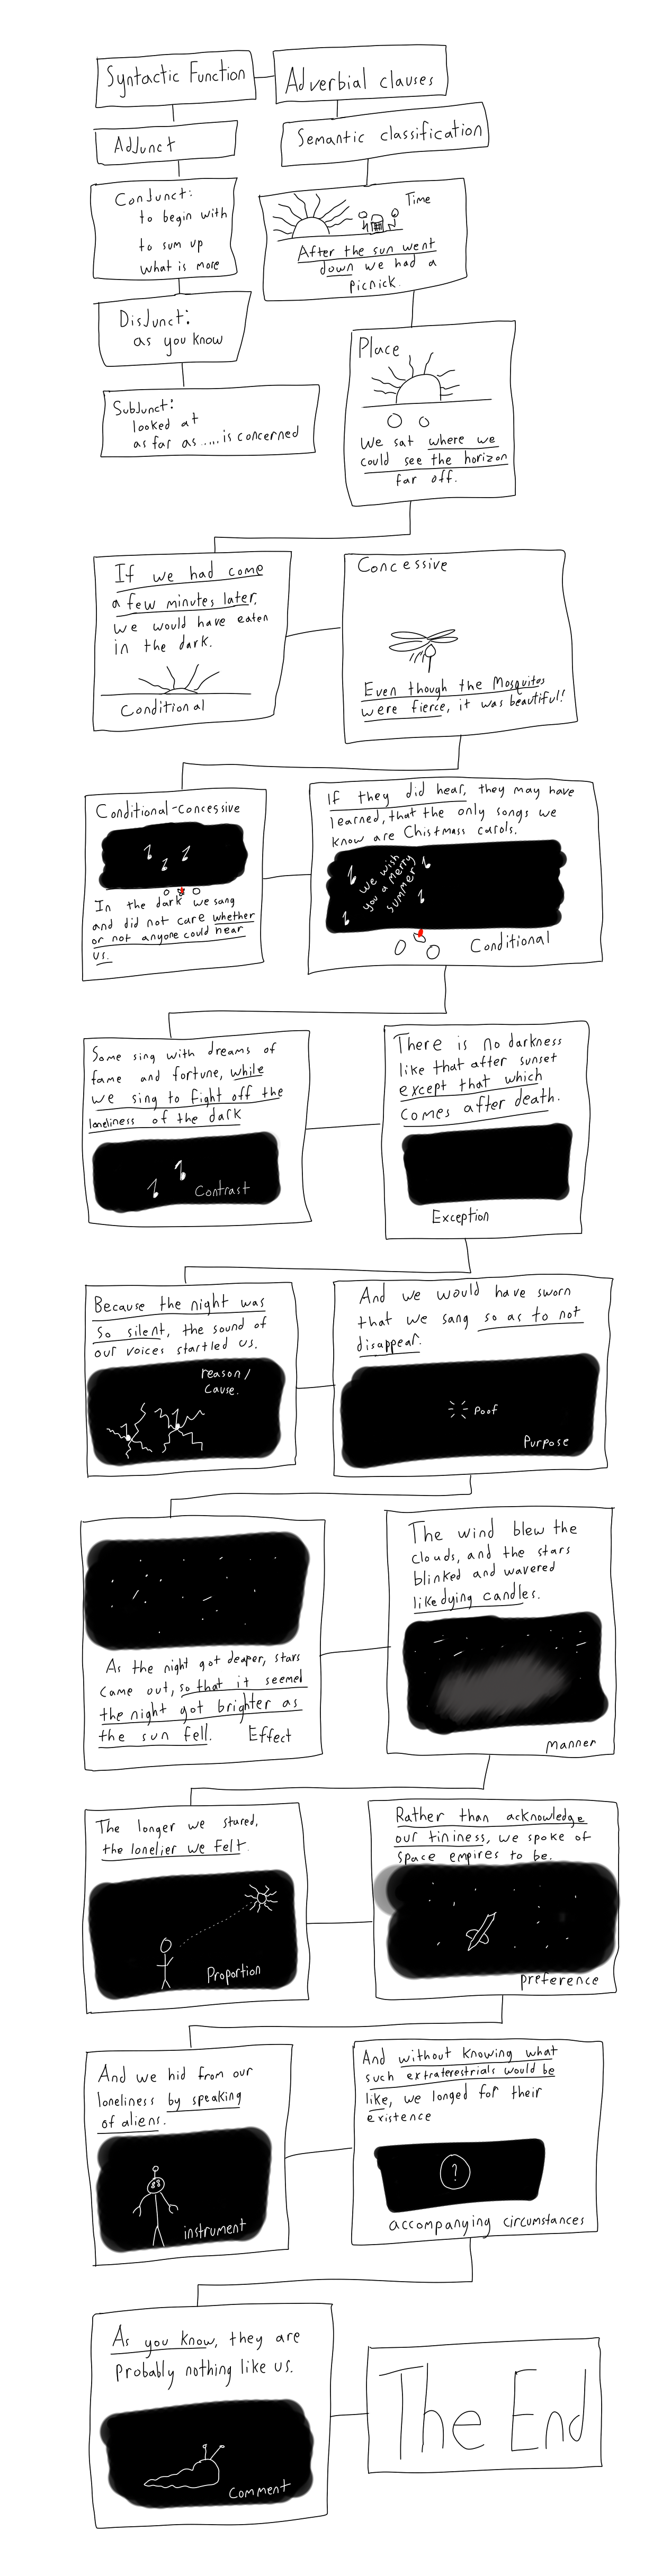 Syntactic Function
Adverbial clauses
Adjunct
Semantic classification
Conjunct:
to begin with
to sum up
what is more
Time
After the sun went
down we had a
picnick.
Disjunct:
as you know
Subjunct:
looked at
as far as .... is concerned
Place
We sat where we
could see the horizon
far off.
If we had come
a few minutes later,
we would have eaten
in the dark.
Conditional
Concessive
Even though the Mosquitos
were fierce, it was beautiful!
Conditional-Concessive
In the dark we sang
and did not care whether
or not anyone could hear
us.
If they did hear, they may have
learned, that the only songs we
know are Chistmass carols.
We wish
you a merry
summer
Conditional
Some sing with dreams of
fame and fortune, while
we sing to fight off the
loneliness of the dark
Contrast
There is no darkness
like that after sunset
except that which
comes after death.
Exception
Because the night was
so silent, the sound of
our voices startled us.
reason/
Cause.
And we would have sworn
that we sang so as to not
disappear.
Poof
Purpose
As the night got deaper, stars
came out, so that it seemed
the night got brighter as
the sun fell.
Effect
The wind blew the
clouds, and the stars
blinked and wavered
like dying candles.
manner
The longer we stared,
the lonelier we felt
Proportion
Rather than acknowledge
our tininess, we spoke of
space empires to be.
preference
And we hid from our
loneliness by speaking
of aliens.
instrument
And without knowing what
such extraterestrials would be
like, we longed for their
existence
?
accompanying circumstances
As you know, they are
probably nothing like us.
Comment
The End